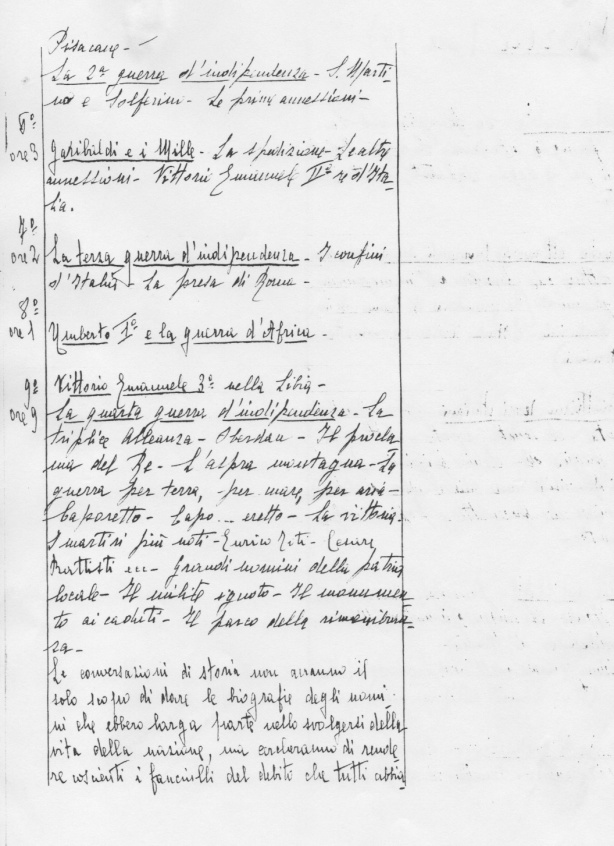 Pisacane -
La 2ª guerra d'indipendenza - S. Marti
no e Solferino - Le prime annessioni -
6º
ore 3 Garibaldi e i Mille - La spedizione - Le altre
annessioni - Vittorio Emanuele IIº re d'Ita-
lia.
7º
ore 2 La terza guerra d'indipendenza - I confini
d'Italia - La presa di Roma -
8º
ore 1 Umberto Iº e la guerra d'Africa -
9º Vittorio Emanuele 3º nella Libia -
ore 9 La quarta guerra d'indipendenza - La
triplice Alleanza - Oberdan - Il procla
ma del Re - L'aspra montagna - La
guerra per terra, per mare, per aria -
Caporetto - Capo... eretto - La vittoria
I martiri più noti - Enrico Toti - Cesare
Battisti ecc - Grandi uomini della patria
locale - Il milite ignoto - Il monumen
to ai caduti - Il parco della rimembran
za -
Le conversazioni di storia non avranno il
solo scopo di dare le biografie degli uomi-
ni che ebbero larga parte nello svolgersi della
vita della nazione, ma cercheranno di rende-
re coscienti i fanciulli del debito che tutti abbia-